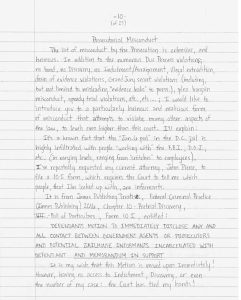 -10-
(of 27)
Prosecutorial Misconduct
The list of misconduct by the Prosecution is extensive, and
heinous. In addition to the numerous Due Process violations;
no bond, no Discovery, no Indictment/Arraignment, illegal extradition,
chain of evidence violations, Grand Jury secret violations (including,
but not limited to misleading, "evidence leaks" to press), plea bargain
misconduct, speedy trial violations, etc, etc...; I would like to
introduce you to a particularly heinous and malicious form
of misconduct that attempts to violate many other aspects of
the law, to levels even higher than this court. I'll explain.
It's a known fact that the "Jan. 6 pod" in the D.C. jail is
highly infiltrated with people "working with" the F.B.I., D.O.J.,
etc. (in varying levels, ranging from 'snitches' to employees).
I've repeatedly requested my current attorney, John Pierce, to
file a 10:5 form, which requires the Court to tell me which
people, that I'm locked up with, are informants.
It is from James Publishing Treatise, Federal Criminal Practice
(James Publishing) 2016, Chapter 10 - Pretrial Discovery,
- Bill of Particulars, Form 10:5, entitled:
DEFENDANT'S MOTION TO IMMEDIATELY DISCLOSE ANY AND
ALL CONTACT BETWEEN GOVERNMENT AGENTS OR PROSECUTORS
AND POTENTIAL JAILHOUSE INFORMANTS INCARCERATED WITH
DEFENDANT AND MEMORANDUM IN SUPPORT
It is my wish that this Motion is moved upon Immediately!
However, having no access to Indictment, Discovery, or even
the number of my case: the Court has tied my hands!